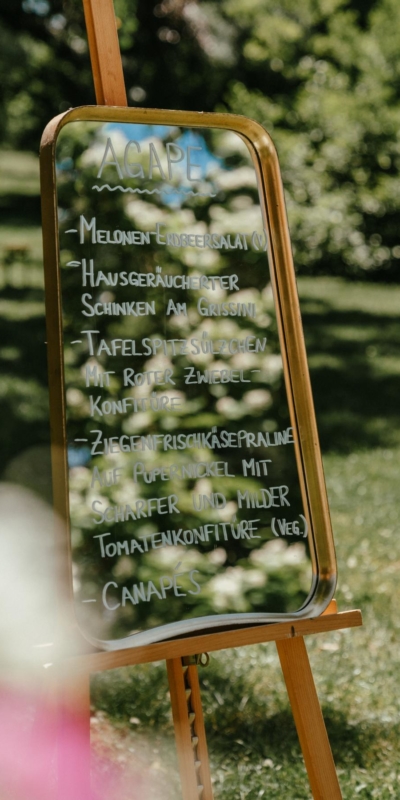 AGAPE
- MELONEN ERDBEERSALAT (V)
- HAUSGERÄUCHERTER
SCHINKEN AM GRISSINI
- TAFELSPITZSÜLZCHEN
MIT ROTER ZWIEBEL-
KONFITÜRE
- ZIEGENFRISCHKÄSEPRALINE
AUF PUPERNICKEL MIT
SCHARFER UND MILDER
TOMATENKONFITÜRE (VEG.)
- CANAPÉS